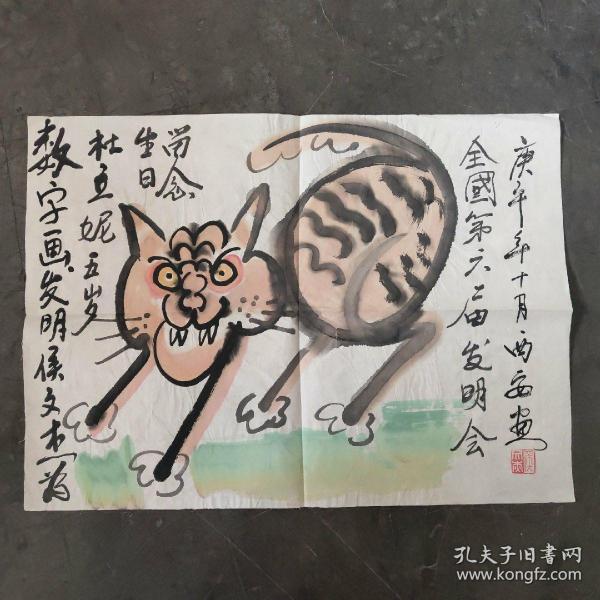 庚午年十月西安画
全國第六届发明会
数字画发明侯文杰为
杜立妮五岁
生日
留念
孔夫子旧書网
www.kongfz.com